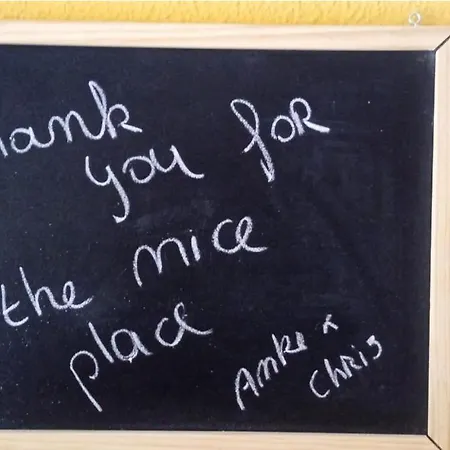 hank
you for
the nice
place
Anke x
Chris